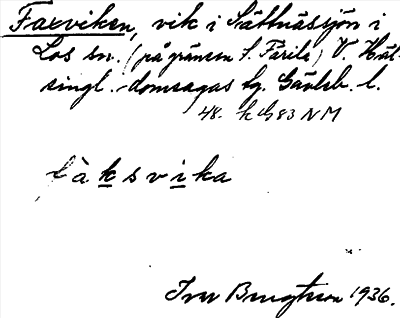 Faxviken, vik i Såttnässjön i
Los sn. (på gränsen t. Färila) V. Häl-
singl. domsagas tg. Gävleb. l.
48. h G83 NM
làksvika
Ivar Bengtsson 1936.